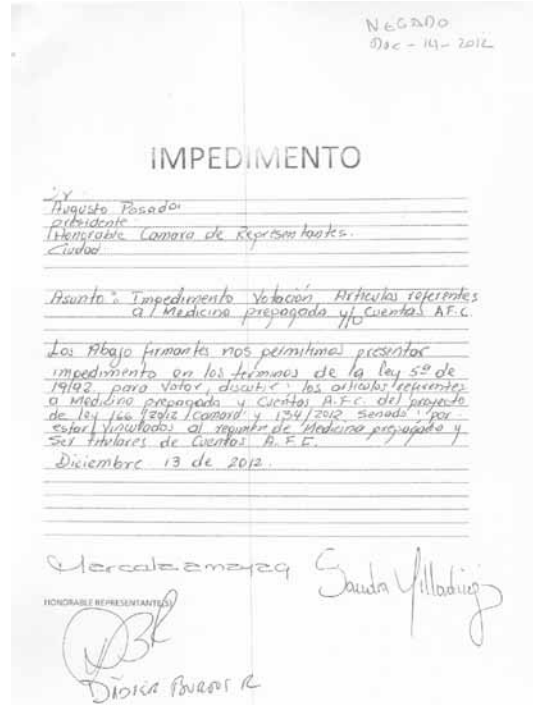 NEGADO
Dic - 14 - 2012
IMPEDIMENTO
Dr.
Augusto Posada
presidente
Honorable Camara de Representantes.
Ciudad
Asunto: Impedimento Votación Articulos referentes
a Medicina prepagada y/o Cuentas AFC.
Los Abajo firmantes nos permitimos presentar
impedimento en los terminos de la ley 5ª de
1992. para Votar, discutir, los articulos referentes
a Medicina prepagada y Cuentas A.F.C. del proyecto
de ley 166/2012 Camara y 134/2012 Senado, por
estar vinculados al regimen de Medicina prepagada y
Ser titulares de Cuentas A.F.C.
Diciembre 13 de 2012.
Sandra Villadiego
HONORABLE REPRESENTANTE(S)
DIDIER BURGOS R